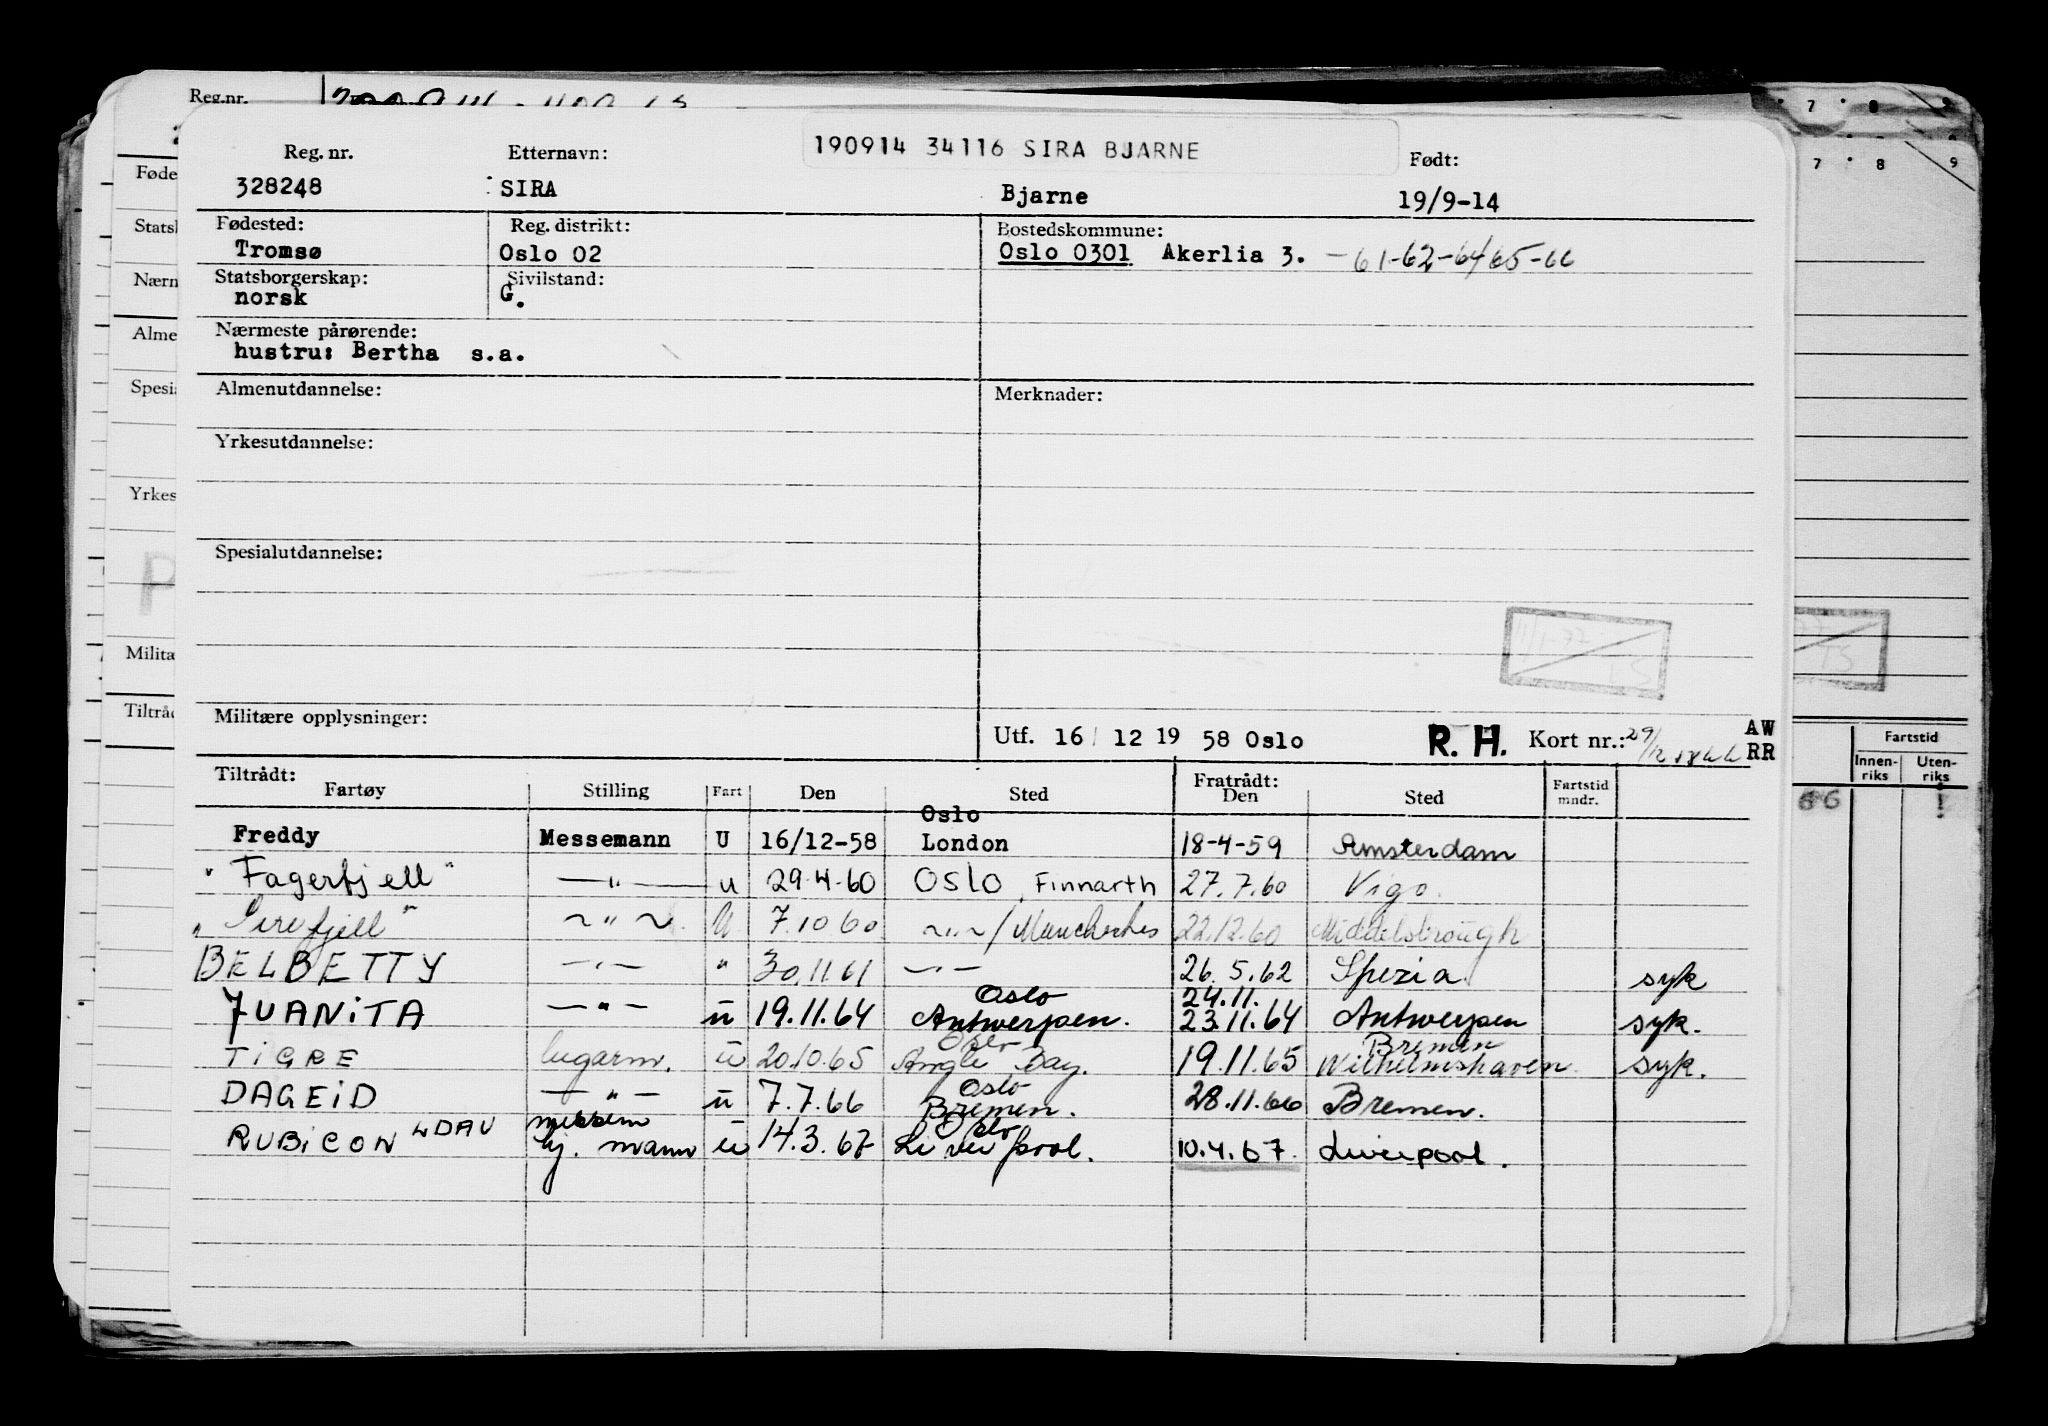 Reg.nr.
190914 34116 SIRA BJARNE
Reg. nr. Etternavn: Født:
328248 SIRA Bjarne 19/9-14
Fødested: Reg. distrikt: Bostedskommune:
Tromsø Oslo 02 Oslo 0301 Akerlia 3. -61-62-64/65-66
Statsborgerskap: Sivilstand:
norsk G.
Nærmeste pårørende:
hustru: Bertha s.a.
Almenutdannelse: Merknader:
Yrkesutdannelse:
Spesialutdannelse:
11/1-77
TS
Militære opplysninger: Utf. 16/ 12 19 58 Oslo R. H. Kort nr.: AW
RR
Tiltrådt: Fratrådt:
Fartøy Stilling Fart Den Sted Den Sted Fartstid mndr.
Oslo
Freddy Messemann U 16/12-58 London 18-4-59 Amsterdam
"Fagerfjell" —"— u 29.4.60 OSLO Finnarth 27.7.60 Vigo.
"Sirefjell" ~"~ U 7.10 60 ~"~/Manchester 22.12.60 Middelsbrough
BELBETTY —"— " 30.11.61 —"— 26.5.62 Spezia syk
Oslo 24.11.
JUANITA —"— u 19.11.64 Antwerpen. 23.11.64 Antwerpen syk.
Oslo Bremen
TIGRE lugarm. u 20.10.65 Angle Bay. 19.11.65 Wilhelmshaven syk.
Oslo
DAGEID —"— u 7.7.66 Bremen. 28.11.66 Bremen.
messem Oslo
RUBICON LDAU hj. mann u 14.3.67 Liverpool. 10.4.67. Liverpool.
Føde
Stats
Nærn
Alme
Spesia
Yrkes
P
Militæ
Tiltråd
7 8 9
7 8 9
TS
Fartstid
Innen-riks Uten-riks
66